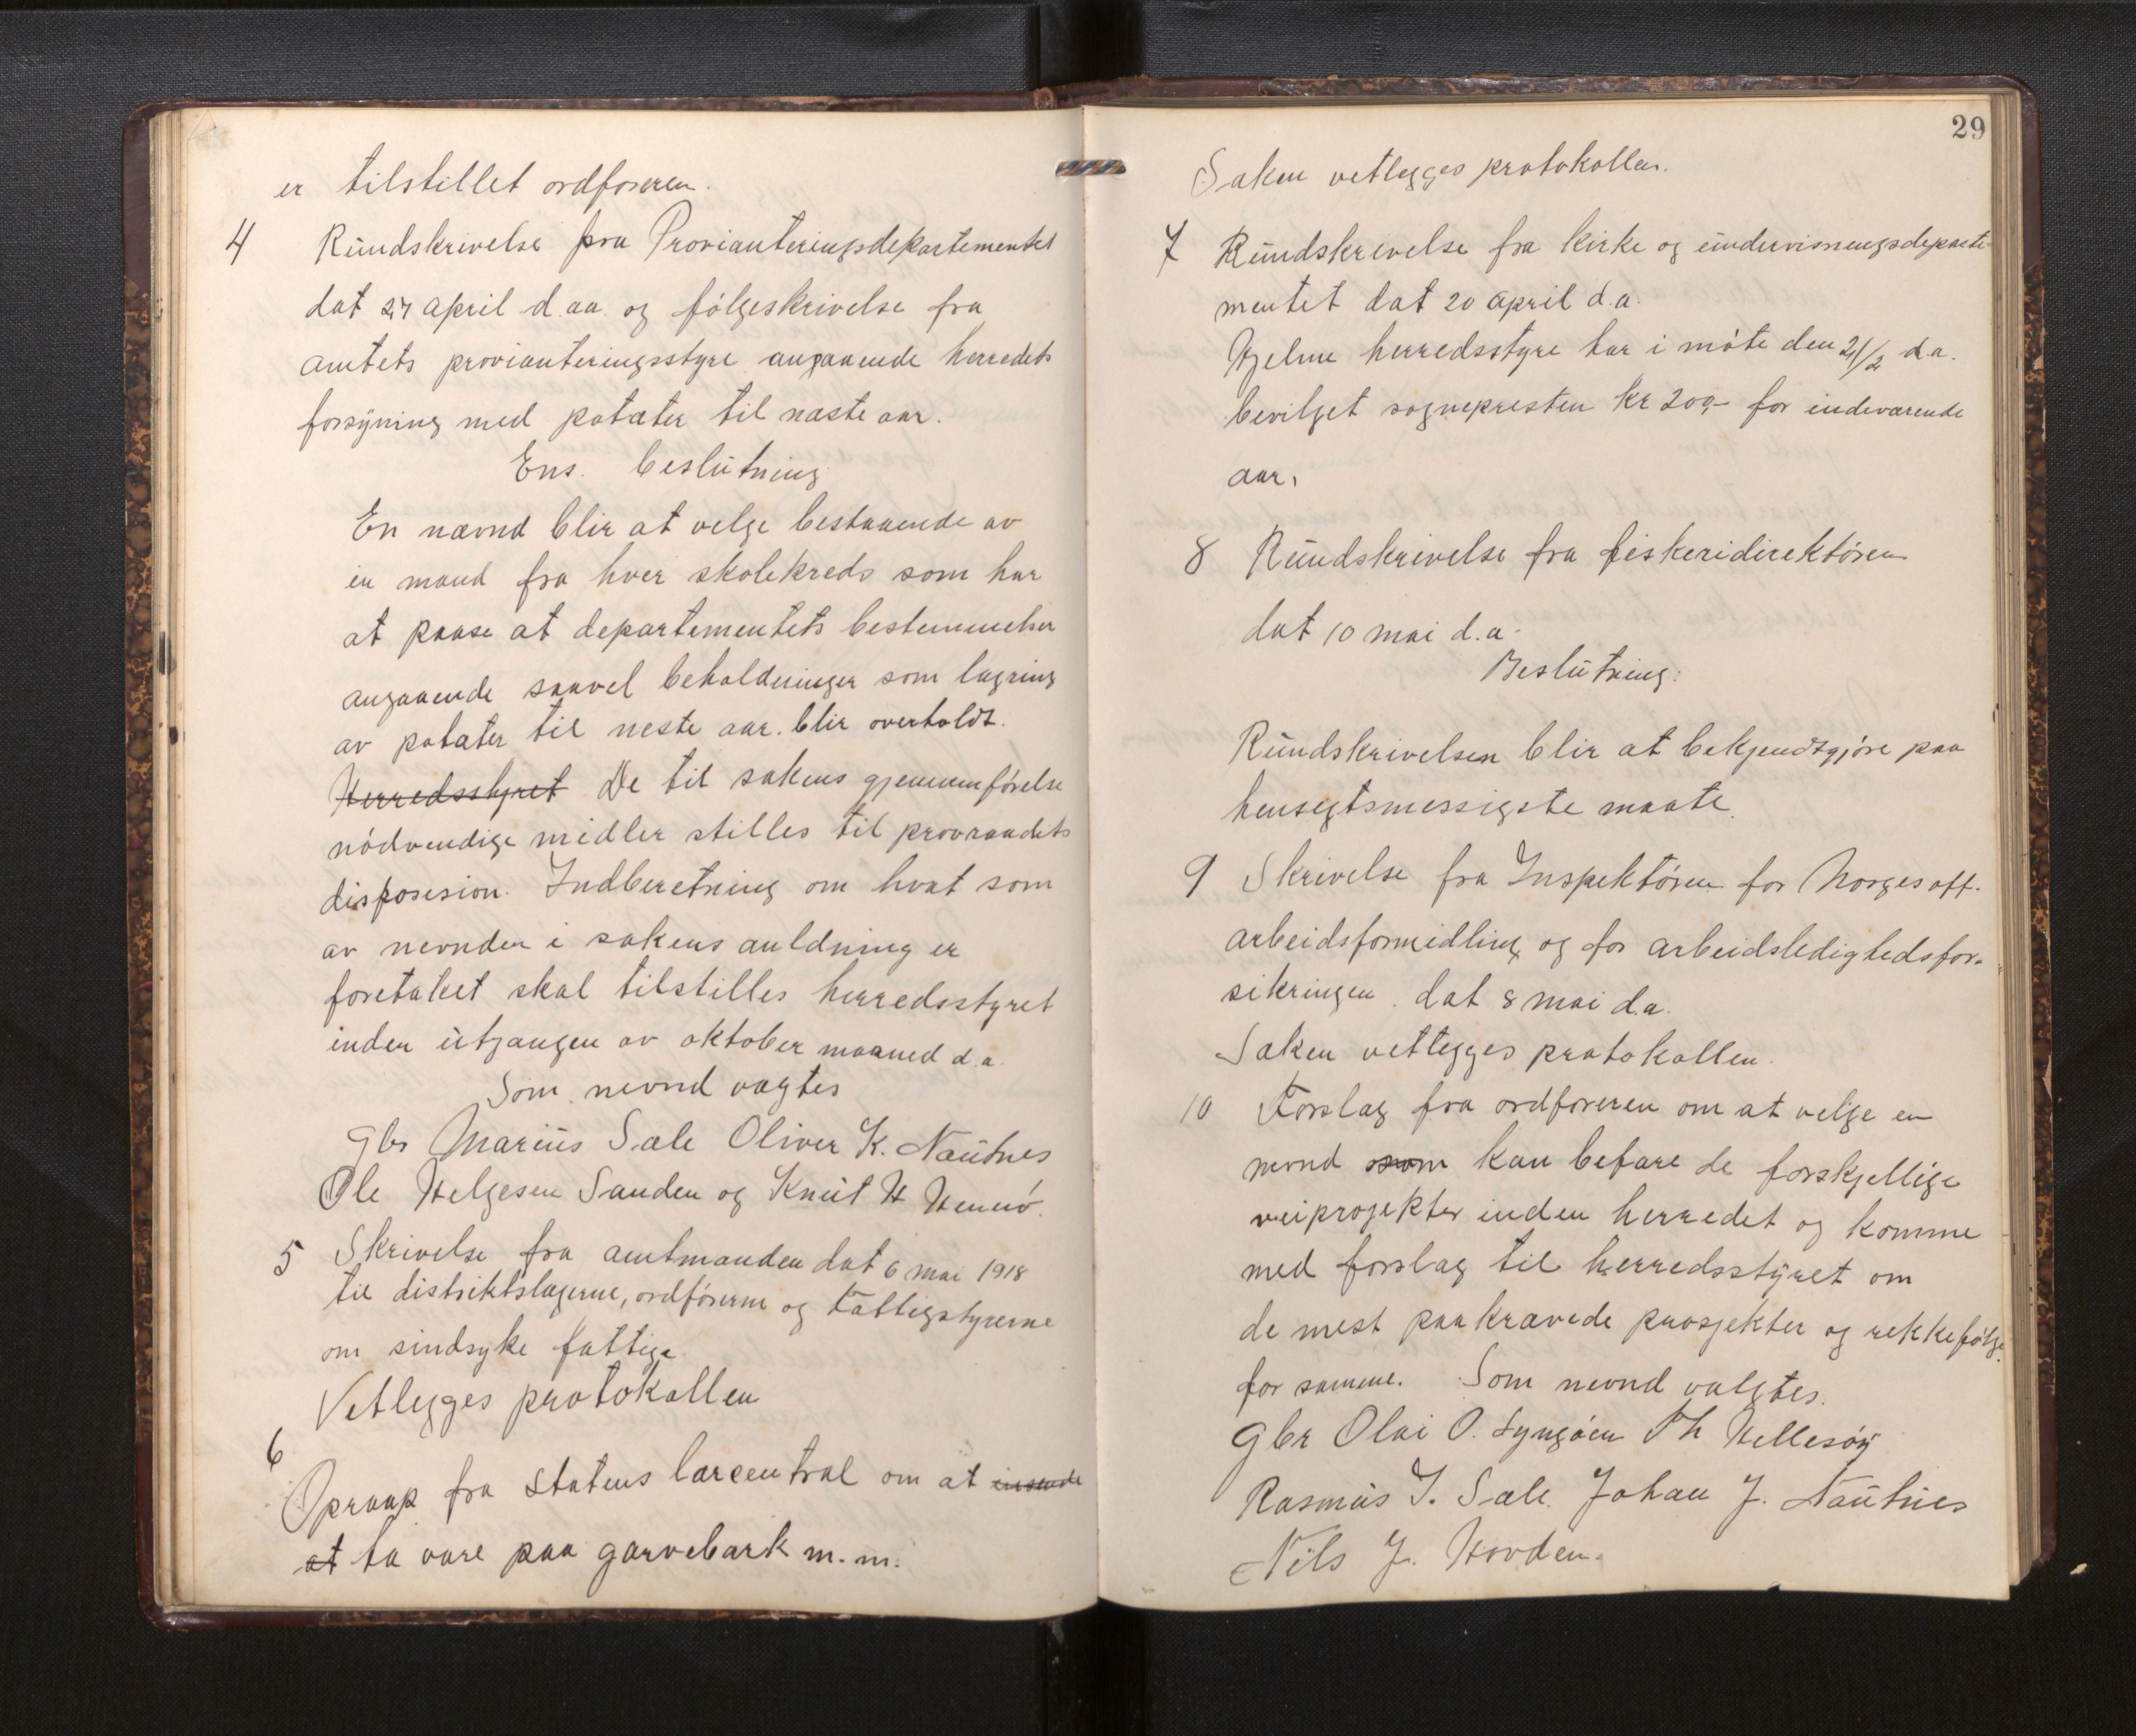 er tilstillet ordføreren.
4 Rundskrivelse fra Provianteringsdepartementet
dat 27 april d. aa. og følgeskrivelse fra
amtets provianteringsstyre angaaende herredets
forsyning med potæter til næste aar.
Ens. beslutning
En nævnd blir at velge bestaaende av
en mand fra hver skolekreds som har
at paase at departementets bestemmelser
angaaende saavel beholdninger som lagring
av potæter til neste aar. blir overholdt.
Herredsstyret De til sakens gjennemførelse
nødvendige midler stilles til provraadets
disposision. Indberetning om hvat som
av nevnden i sakens anldning er
foretaket skal tilstilles herredsstyret
inden utgangen av oktober maaned d.a.
Som nevnd valgtes
Gbr Marius Sæle Oliver K. Nautnes
Ole Helgesen Sanden og Knut H Hennø.
5 Skrivelse fra amtmanden dat 6 mai 1918
til distriktslægerne, ordførerne og Fattigstyrerne
om sindsyke fattige.
Vetlegges protokollen
6
Opraap fra statens lærcentral om at insende
at ta vare paa garvebark m.m.
29
Saken vetlegges protokollen.
7 Rundskrivelse fra Kirke og undervisningsdeparte-
mentet dat 20 april d.a.
Hjelme herredsstyre har i møte den 21/2 d.a.
bevilget sognepresten kr 200,- for indeværende
aar.
8 Rundskrivelse fra fiskeridirektøren
dat 10 mai d.a.
Beslutning:
Rundskrivelsen blir at bekjendtgjøre paa
hensegtsmessigste maate.
9 Skrivelse fra Inspektøren for Norges off.
arbeidsformidling og for arbeidsledighedsfor-
sikringen. dat 8 mai d.a.
Saken vetlegges protokollen.
10 Forslag fra ordføreren om at velge en
nevnd som kan befare de forskjellige
veiprojekter inden herredet og komme
med forslag til herredsstyret om
de mest paakrævede prosjekter og rekkefølge
for samme. Som nevnd valgtes.
Gbr Olai O. Lyngøen Th Hellesøy
Rasmus I. Sæle. Johan J. Nautnes
Nils J. Hovden.